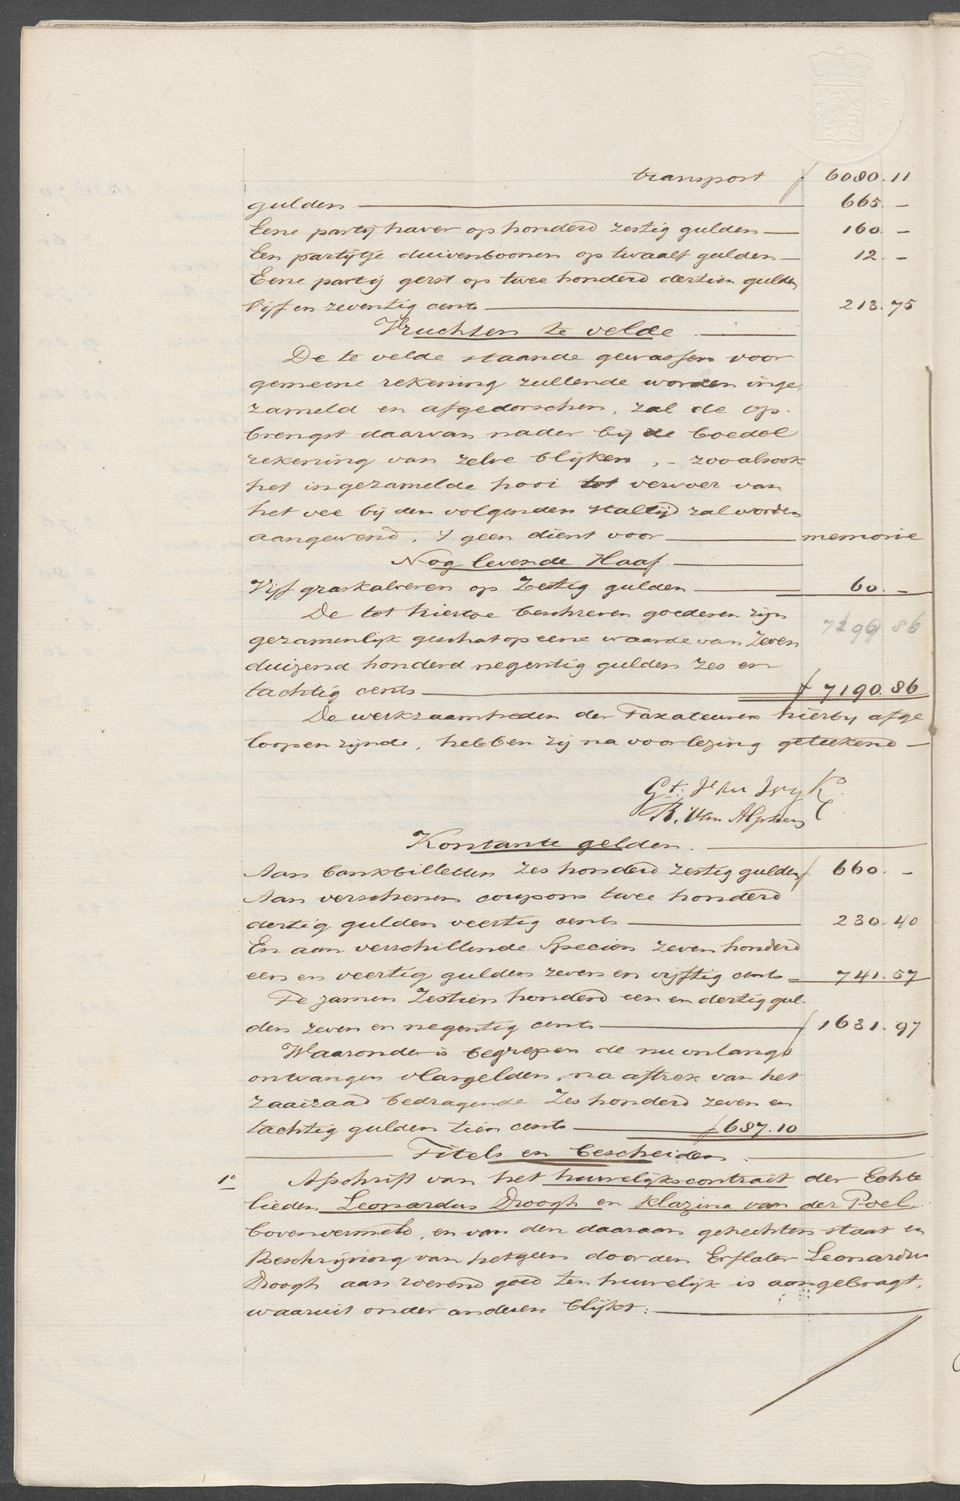 transport ƒ 6080.11
gulden 665.–
Eene partij haver op honderd zestig gulden 160 –
Een partijtje duivenboonen op twaalf gulden 12.–
Eene partij gerst op twee honderd dertien gulden
vijf en zeventig cents 213.75
Vruchten te velde
De te velde staande gewassen voor
gemeene rekening zullende worden inge-
zameld en afgedorschen, zal de op-
brengst daarvan nader bij de boedel
rekening van zelve blijken, – zooalsook
het ingezamelde hooi tot vervoer van
het vee bij den volgenden staltijd zal worden
aangewend, 't geen dient voor memorie
Nog levende Haaf
Vijf graskalveren op Zestig gulden 60.–
De tot hiertoe beschreven goederen zijn
gezamenlijk geschat op eene waarde van Zeven
duizend honderd negentig gulden Zes en
tachtig cents ƒ 7190.86
De werkzaamheden der Taxateuren hierbij afge
loopen zijnde, hebben zij na voorlezing geteekend –
B. Van Alphen
Kontante gelden.
Aan bankbilletten Zes honderd zestig gulden ƒ 660.–
Aan verschenen coupons twee honderd
dertig gulden veertig cents 230.40
En aan verschillende Speciën zeven honderd
een en veertig gulden zeven en vijftig cents 741.57
Te zamen Zestien honderd een en dertig gul-
den zeven en negentig cents ƒ 1631.97
Waaronder is begrepen de nu onlangs
ontvangen vlasgelden, na aftrek van het
zaaizaad bedragende Zes honderd zeven en
tachtig gulden tien cents ƒ 687.10
Titels en bescheiden.
1° Afschrift van het huwelijkscontract der Echte
lieden Leonardus Droogh en Klazina van der Poel
bovenvermeld, en van den daaraan gehechten staat en
Beschrijving van hetgeen door den Erflater Leonardus
Droogh aan roerend goed ten huwelijk is aangebragt,
waaruit onder anderen blijkt: